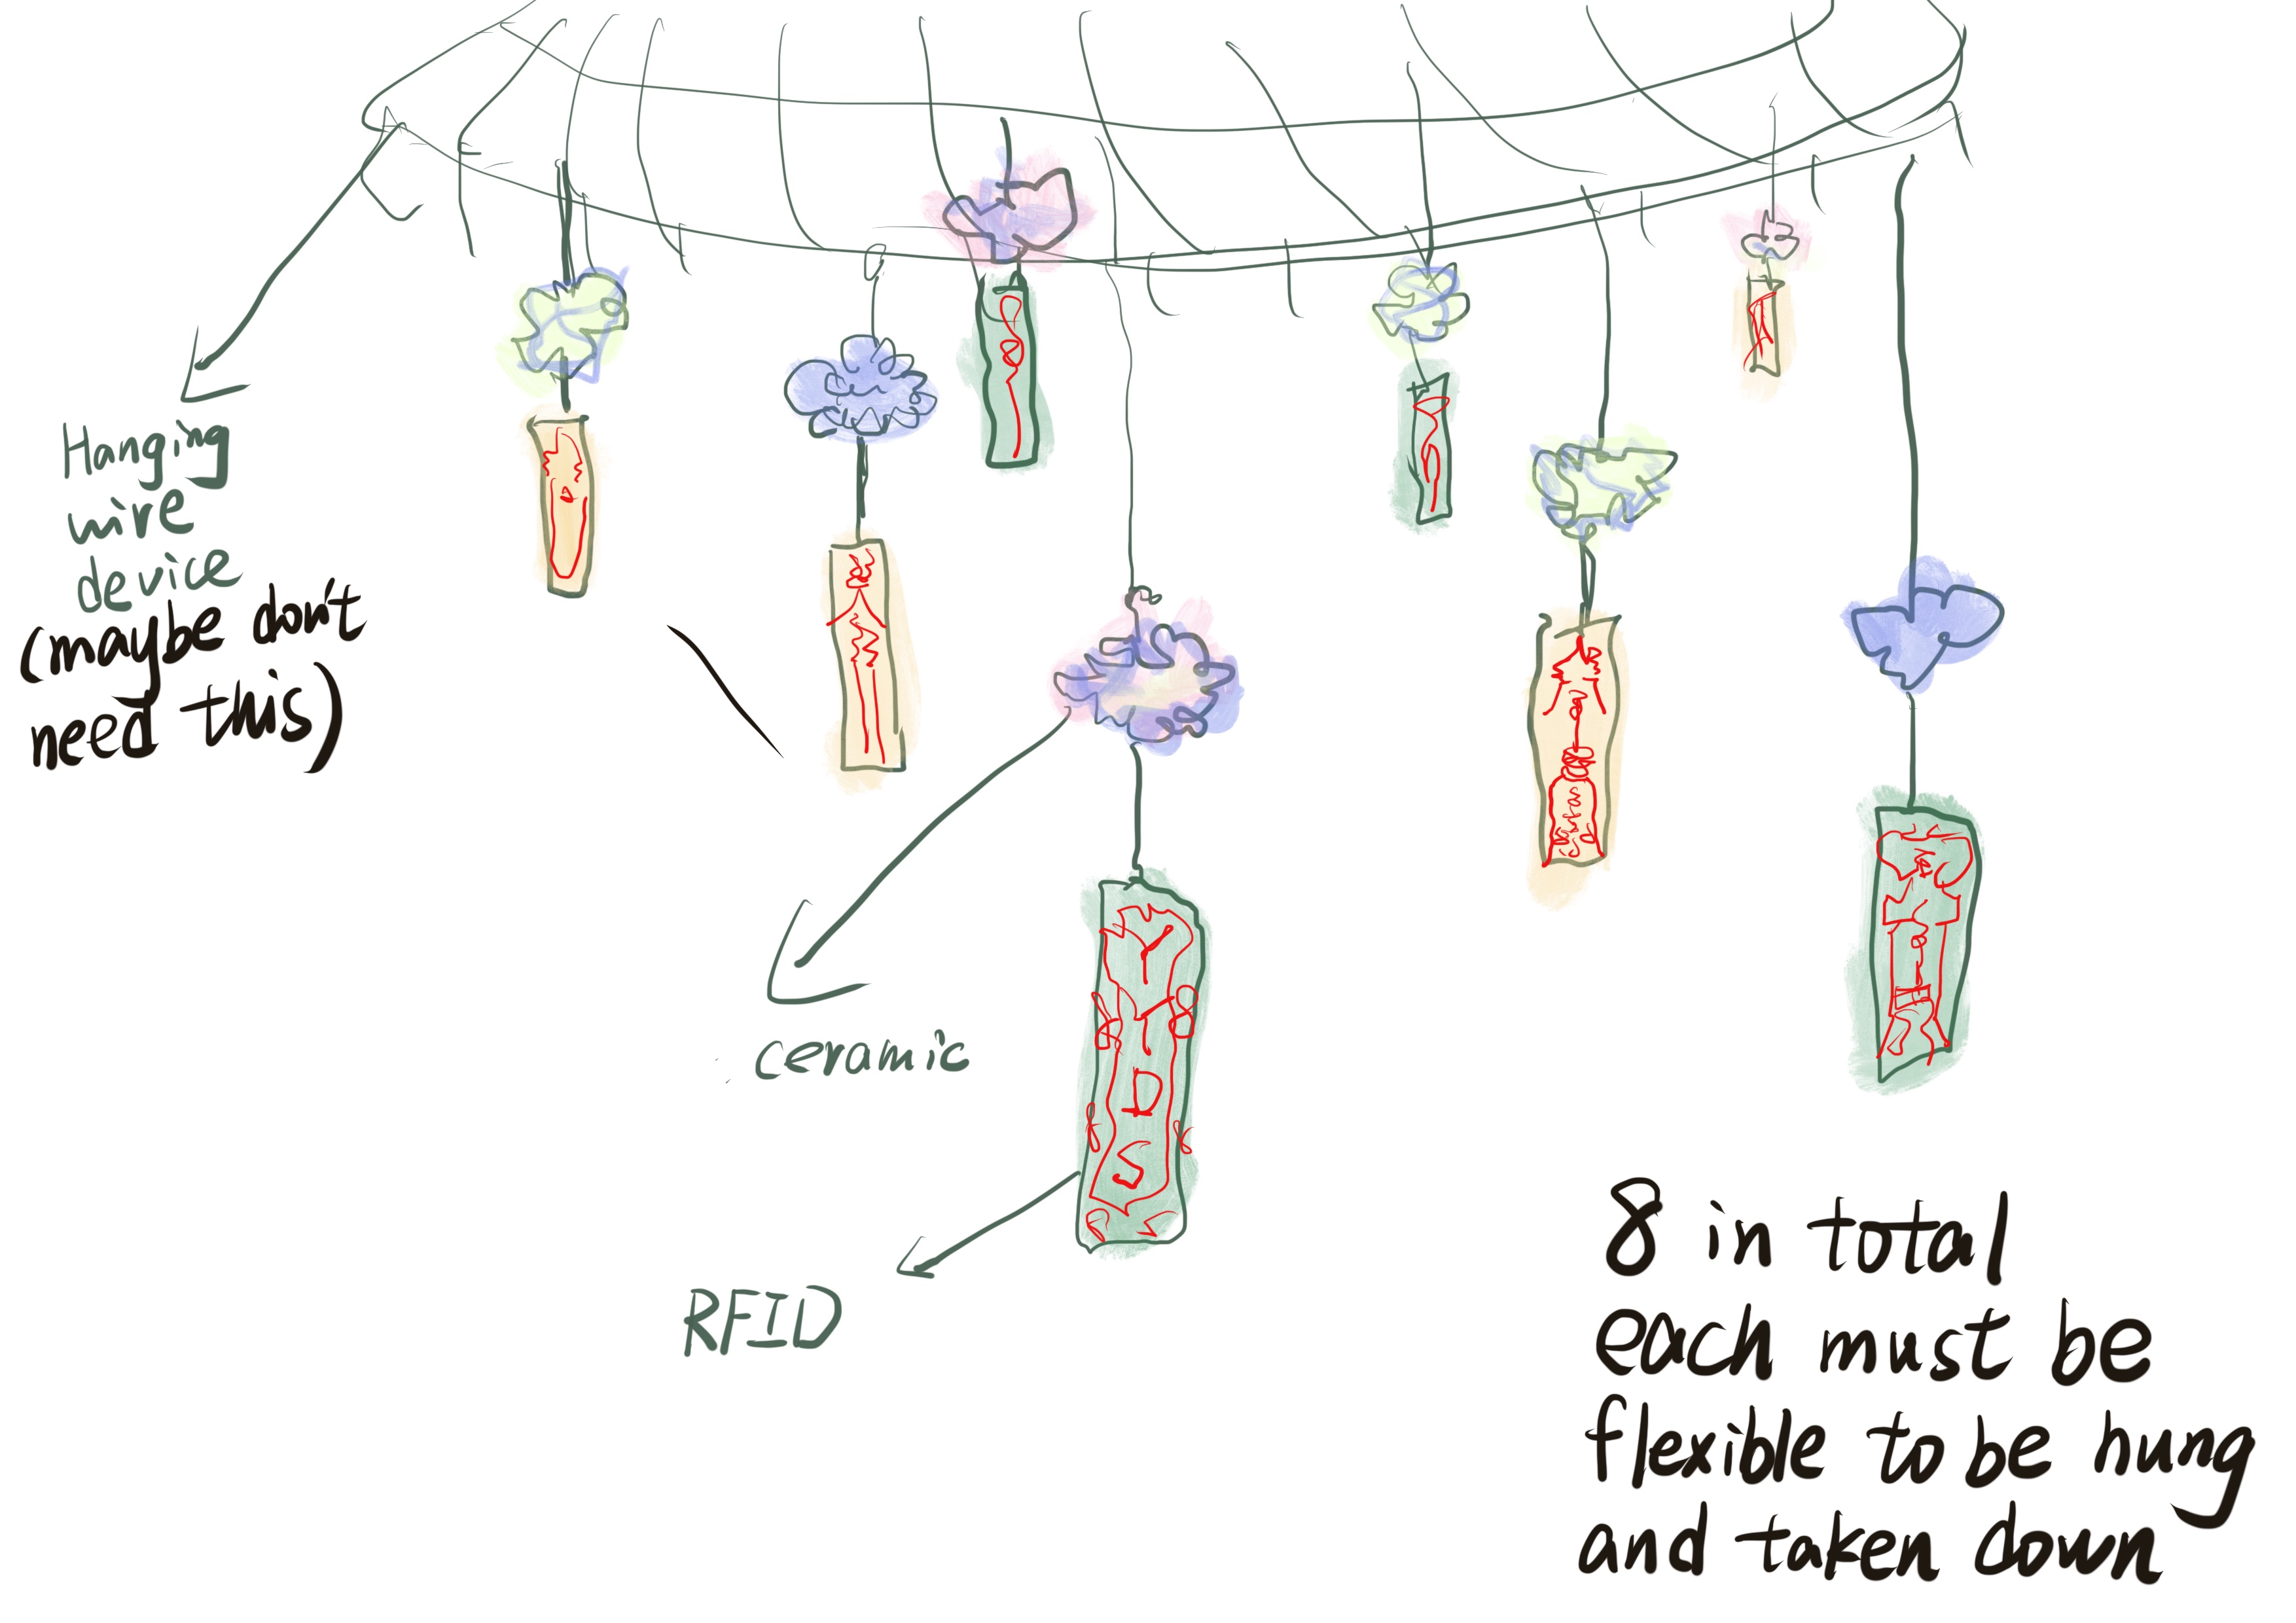 Hanging
wire
device
(maybe don't
need this)
ceramic
Y
Y
D
S
RFID
8 in total
each must be
flexible to be hung
and taken down